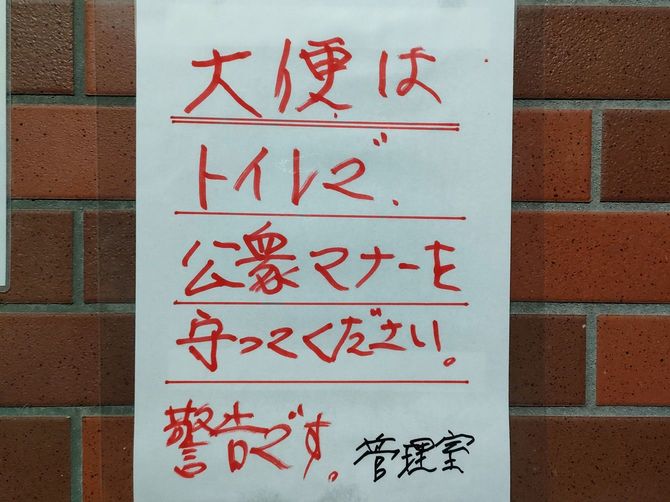 大便は
トイレで、
公衆マナーを
守ってください。
警告です。
管理室